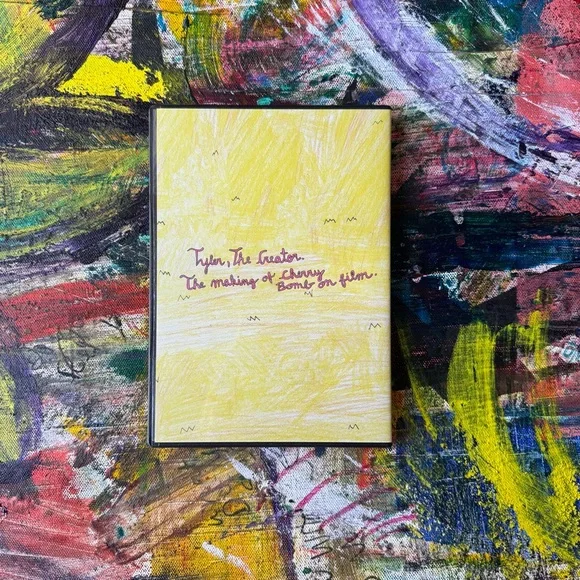 Tyler, The Creator.
The making of Cherry
Bomb on film.